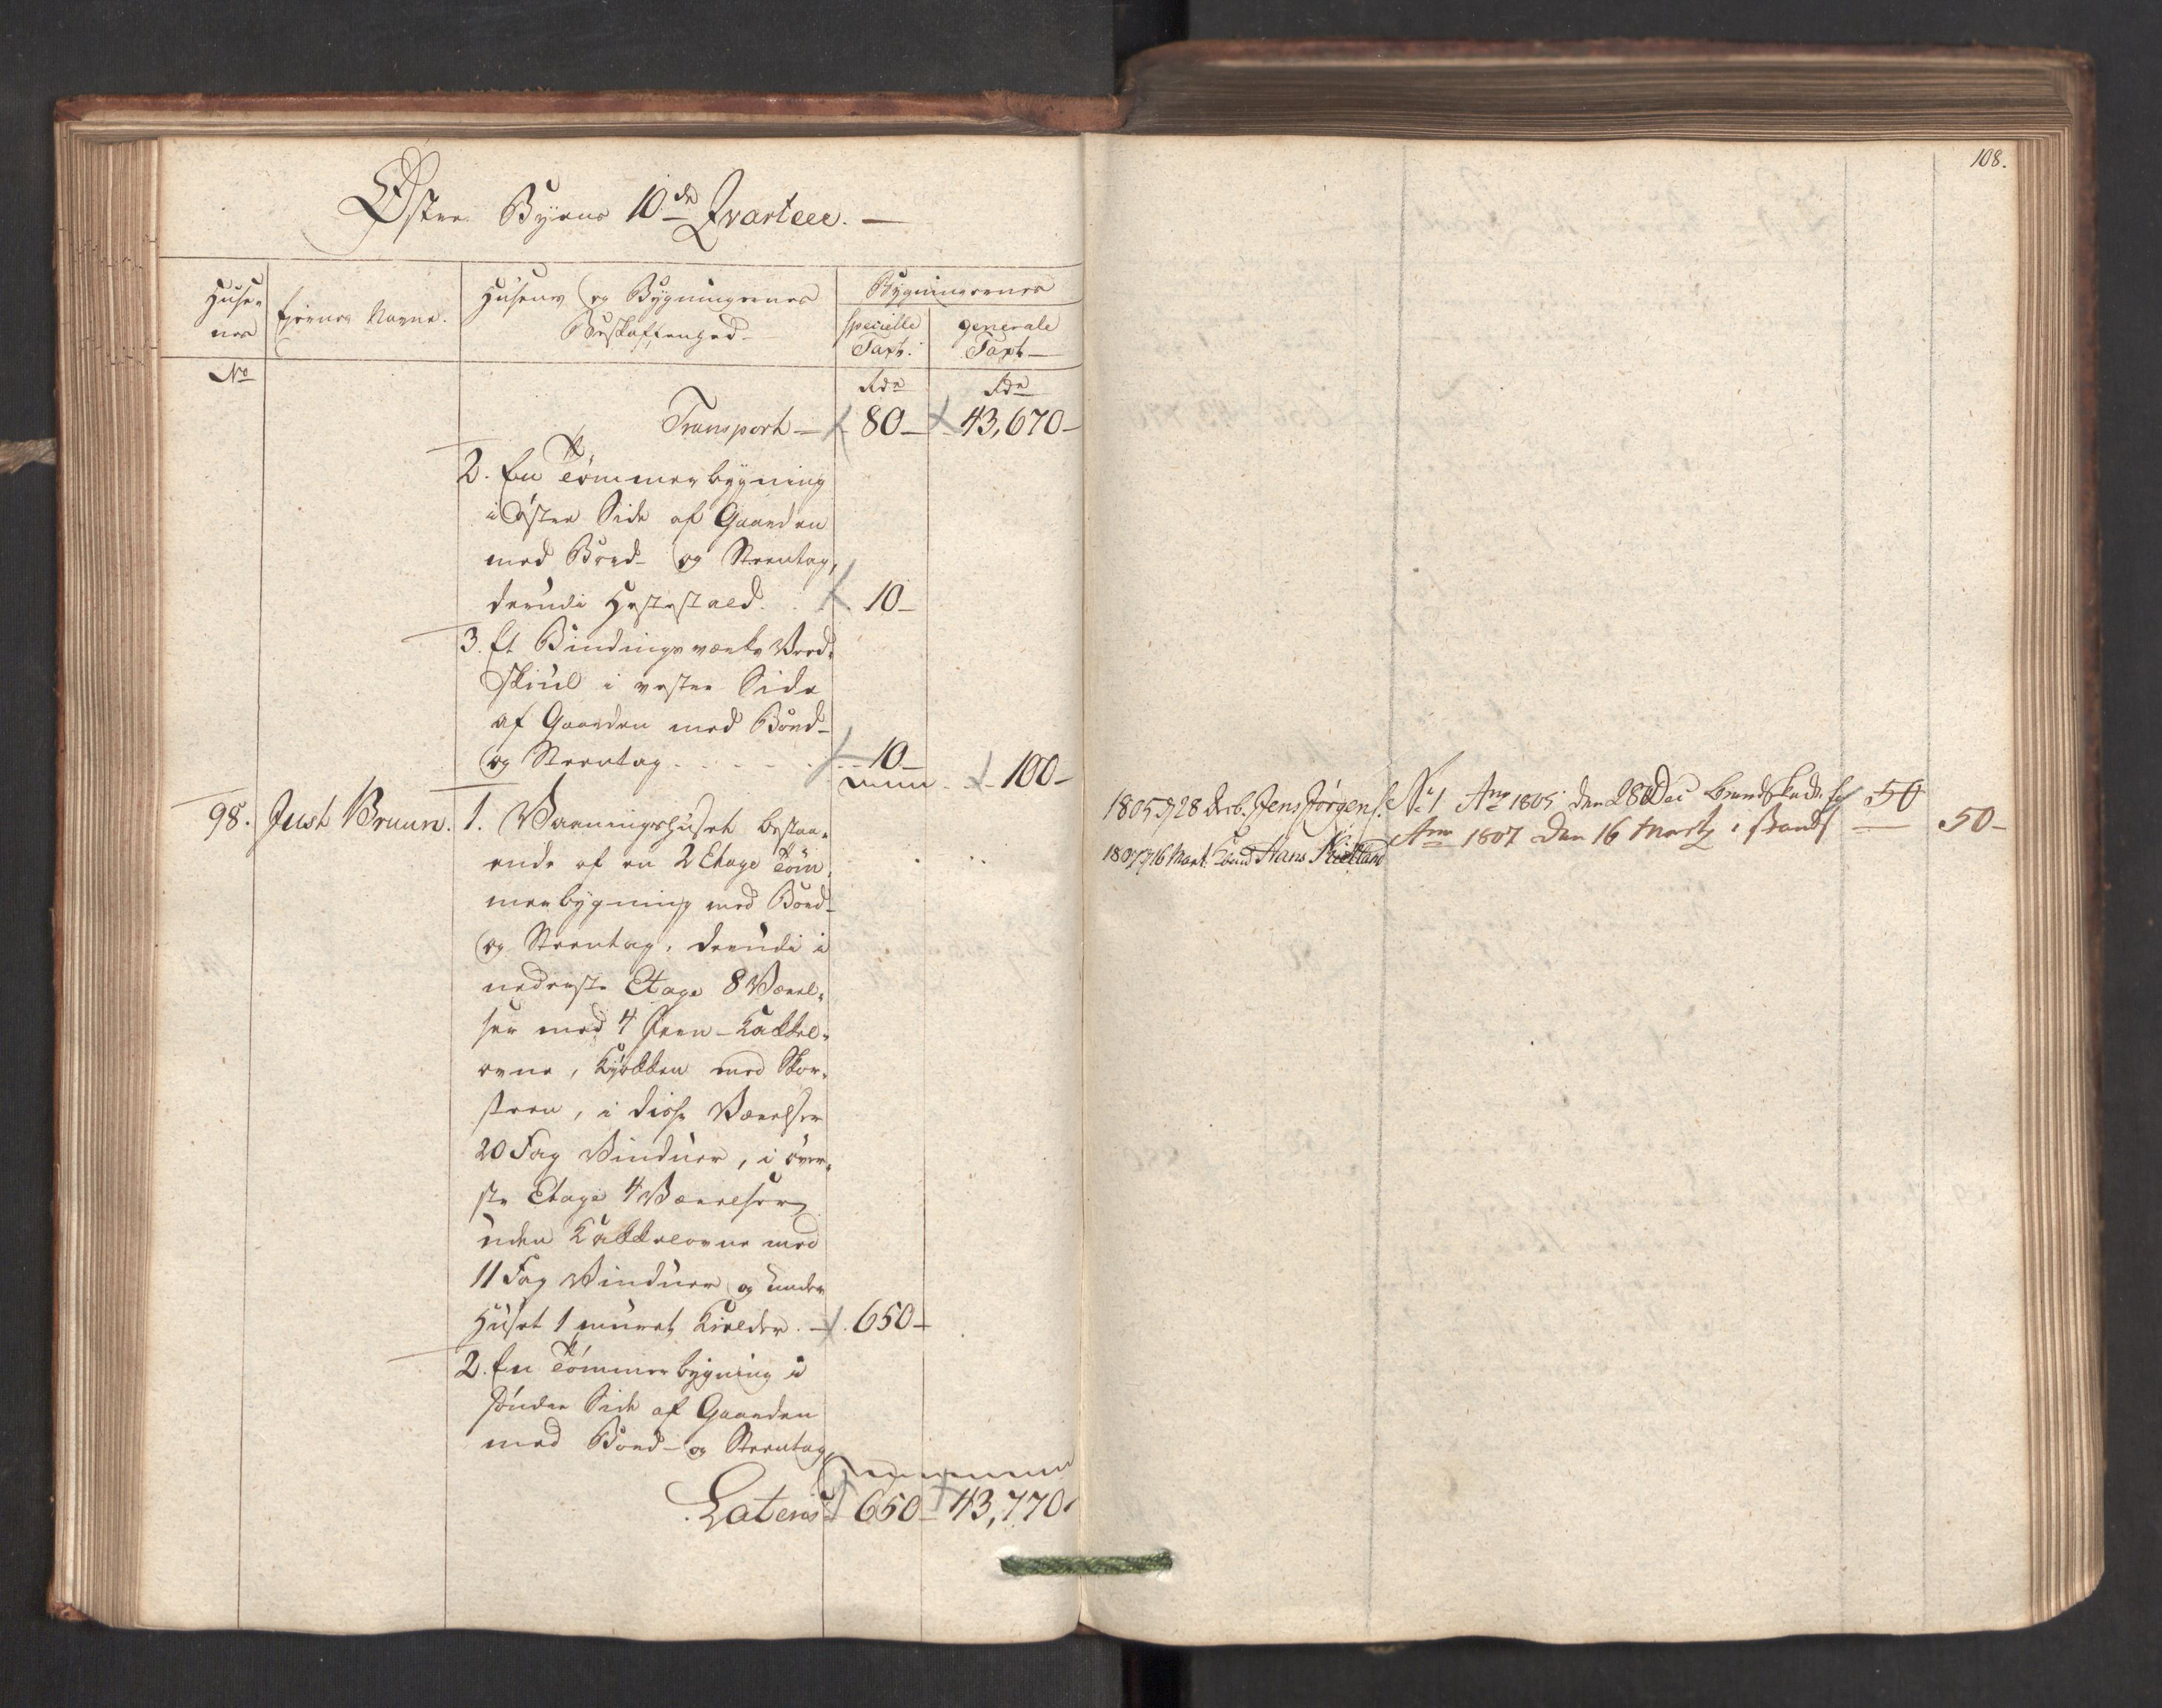 Østre Byens 10de Qvarteer. —
Huse-
nes
Ejernes Navne.
Husenes og Bygningernes
Beskaffenhed
Bygningernes
specielle
Taxt.
generale
Taxt
No
Rdr
Rdr
Transport — 80 — 43,670 —
2. En Tømmerbygning
i øster Side af Gaarden
med Bord- og Steentag,
derudi Hestestald. . 10 —
3. Et Bindingsværks Veed-
skiul i vester Side
af Gaarden med Bord-
og Steentag . . . . . . 10 —
100 —
98. Just Bruun. 1. Vaaningshuset bestaa-
ende af en 2 Etage Tøm-
merbygning med Bord-
og Steentag, derudi i
nederste Etage 8 Værel-
ser med 4 Jern-Kakkel-
ovne, Kjøkken med Skor-
steen, i disse Værelser
20 Fag Vinduer, i øver-
ste Etage 4 Værelser
uden Kakkelovne med
11 Fag Vinduer og under
Huset 1 muret Kielder. — 650 —
2. En Tømmerbygning i
sønder Side af Gaarden
med Bord- og Steentag,
Lateris 650 — 43,770
108.
1805 28 Decb. Jens Jørgens. No 1 Ano 1805 den 28 Dec 50
1807 16 Mart. Hans Kielland Ano 1807 den 16 Martz i stand — 50 —